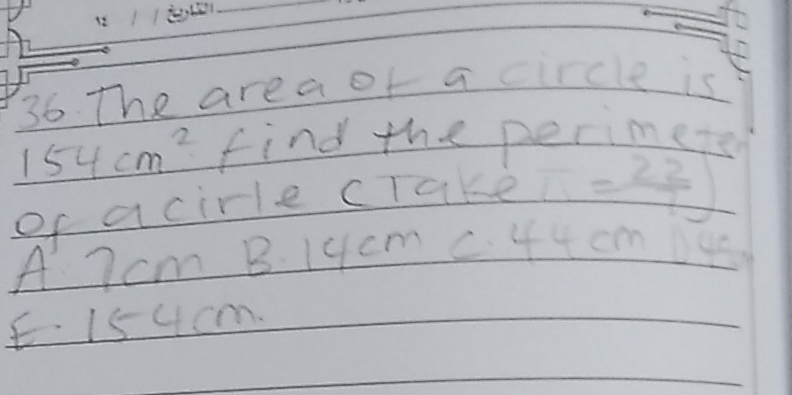 التاريخ / /
36. The area of a circle is
154cm². find the perimeter
of a cirle (Take π = 22/7)
A. 7cm B. 14cm C. 44cm D
E. 154cm.